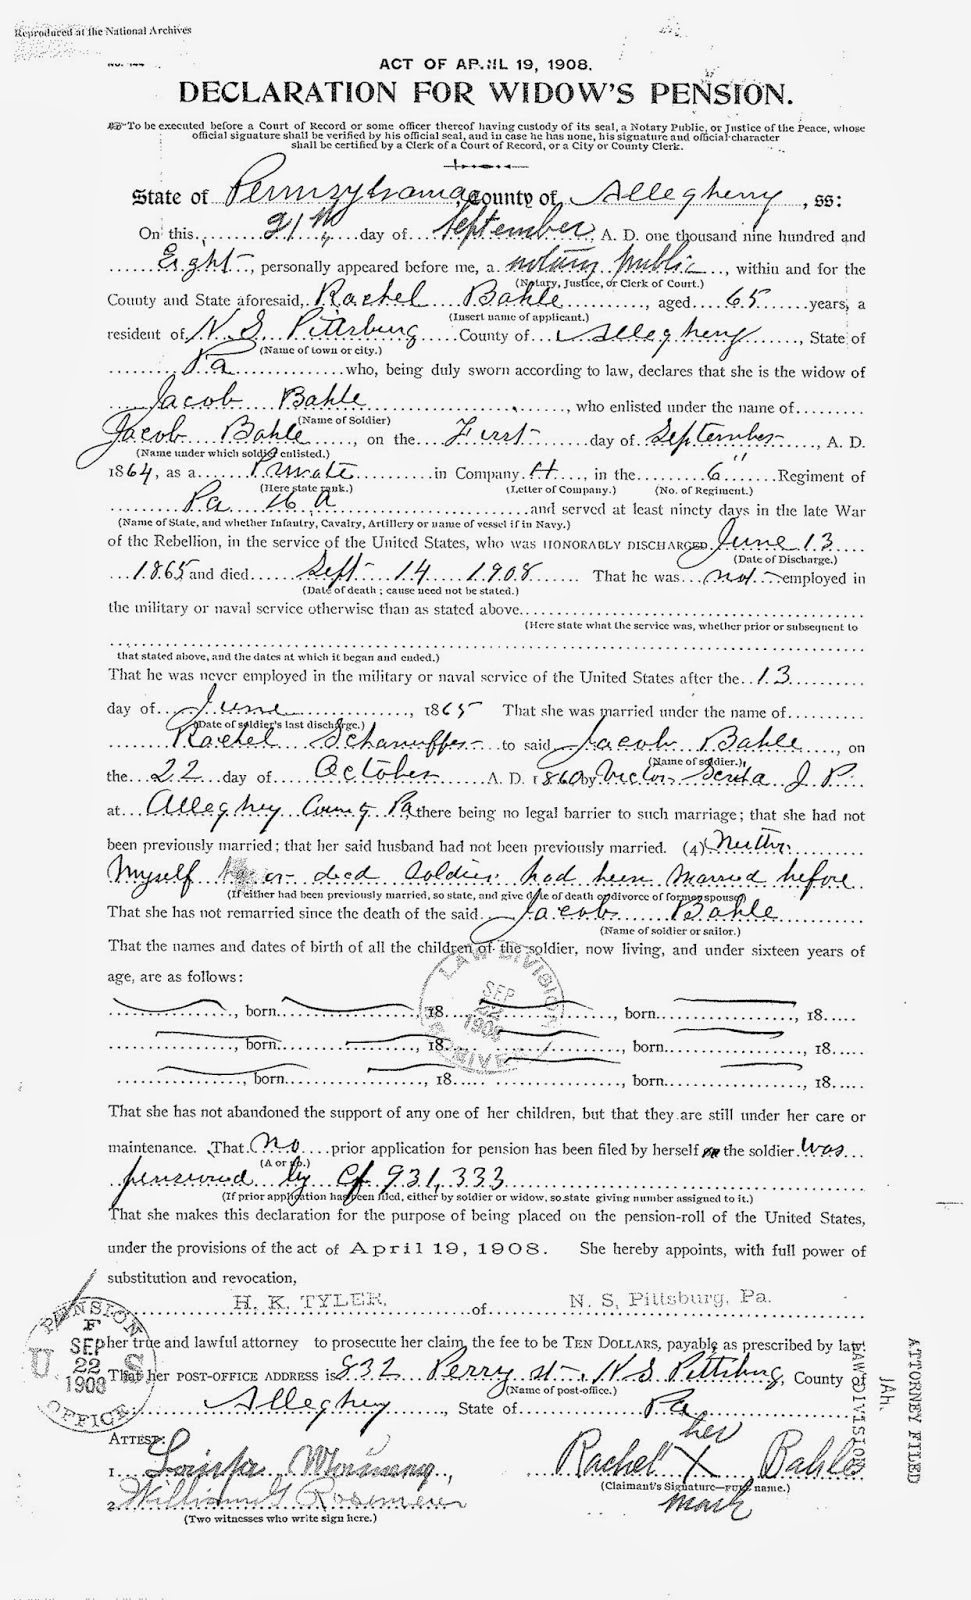 Reproduced at the National Archives
ACT OF APRIL 19, 1908.
DECLARATION FOR WIDOW'S PENSION.
To be executed before a Court of Record or some officer thereof having custody of its seal, a Notary Public, or Justice of the Peace, whose
official signature shall be verified by his official seal, and in case he has none, his signature and official character
shall be certified by a Clerk of a Court of Record, or a City or County Clerk.
State of Pennsylvania, County of Allegheny, ss:
On this 21th day of September, A. D. one thousand nine hundred and
Eight, personally appeared before me, a notary public, within and for the
(Notary, Justice, or Clerk of Court.)
County and State aforesaid, Rachel Bahle, aged 65 years, a
(Insert name of applicant.)
resident of N. S. Pittsburg County of Allegheny, State of
(Name of town or city.)
Pa who, being duly sworn according to law, declares that she is the widow of
Jacob Bahle, who enlisted under the name of
(Name of Soldier)
Jacob Bahle, on the First day of September, A. D.
(Name under which soldier enlisted.)
1864, as a Private in Company H, in the 6" Regiment of
(Here state rank.) (Letter of Company.) (No. of Regiment.)
Pa H A and served at least ninety days in the late War
(Name of State, and whether Infantry, Cavalry, Artillery or name of vessel if in Navy.)
of the Rebellion, in the service of the United States, who was HONORABLY DISCHARGED June 13
(Date of Discharge.)
1865 and died Sept 14 1908 That he was not employed in
(Date of death; cause need not be stated.)
the military or naval service otherwise than as stated above
(Here state what the service was, whether prior or subsequent to
that stated above, and the dates at which it began and ended.)
That he was never employed in the military or naval service of the United States after the 13
day of June, 1865 That she was married under the name of
(Date of soldier's last discharge.)
Rachel to said Jacob Bahle, on
(Name of soldier.)
the 22 day of October A. D. 1860 by Victor J. P.
at Allegheny County Pa there being no legal barrier to such marriage; that she had not
been previously married; that her said husband had not been previously married. (4) Neither
Myself or died Soldier had been Married before
(If either had been previously married, so state, and give date of death or divorce of former spouse)
That she has not remarried since the death of the said Jacob Bahle
(Name of soldier or sailor.)
That the names and dates of birth of all the children of the soldier, now living, and under sixteen years of
age, are as follows:
LAW DIVISION
SEP
22
1908
, born , 18 , born , 18
, born , 18 , born , 18
, born , 18 , born , 18
That she has not abandoned the support of any one of her children, but that they are still under her care or
maintenance. That no prior application for pension has been filed by herself or the soldier was
(A or no.)
pensioned by Cf 931,333
(If prior application has been filed, either by soldier or widow, so state giving number assigned to it.)
That she makes this declaration for the purpose of being placed on the pension-roll of the United States,
under the provisions of the act of April 19, 1908. She hereby appoints, with full power of
substitution and revocation,
H. K. TYLER, of N. S. Pittsburg, Pa.
her true and lawful attorney to prosecute her claim, the fee to be TEN DOLLARS, payable as prescribed by law.
That her POST-OFFICE ADDRESS is 832 Perry st, N S Pittsburg, County
(Name of post-office.)
Allegheny, State of Pa
U S PENSION OFFICE
F
SEP
22
1908
LAW DIVISION
JAH.
ATTORNEY FILED
ATTEST:
1. Louisa
2. William G
(Two witnesses who write sign here.)
her
Rachel X Bahle
(Claimant's Signature—FULL name.)
mark